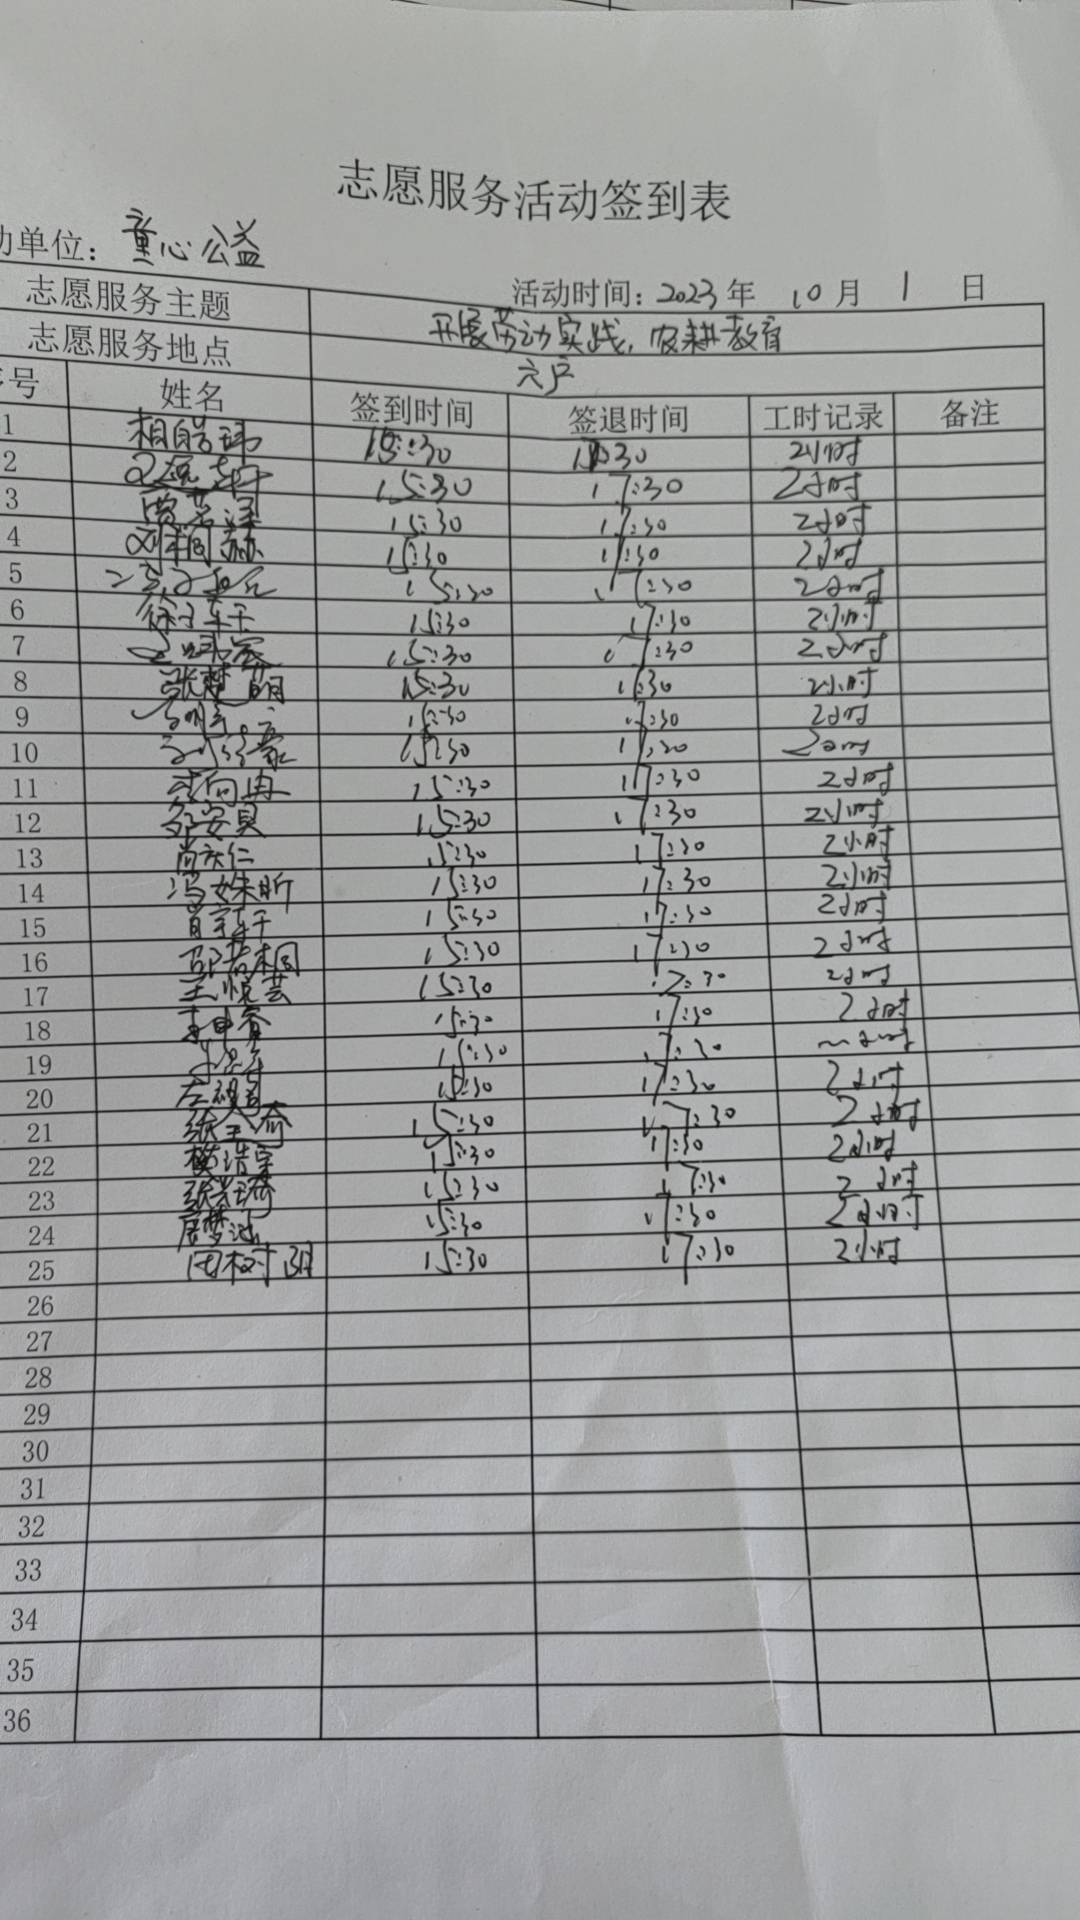 志愿服务活动签到表
动单位：童心公益
活动时间：2023年 10月 1 日
志愿服务主题 开展劳动实践，农耕教育
志愿服务地点 六户
号 姓名 签到时间 签退时间 工时记录 备注
1 相皓玮 15:30 17:30 2小时
2 15:30 17:30 2小时
3 15:30 17:30 2小时
4 15:30 17:30 2小时
5 15:30 17:30 2小时
6 徐子轩 15:30 17:30 2小时
7 15:30 17:30 2小时
8 张楚萌 15:30 17:30 2小时
9 15:30 17:30 2小时
10 15:30 17:30 2小时
11 15:30 17:30 2小时
12 邹安贝 15:30 17:30 2小时
13 尚庆仁 15:30 17:30 2小时
14 冯姝昕 15:30 17:30 2小时
15 15:30 17:30 2小时
16 邵若桐 15:30 17:30 2小时
17 王悦芸 15:30 17:30 2小时
18 15:30 17:30 2小时
19 15:30 17:30 2小时
20 15:30 17:30 2小时
21 15:30 17:30 2小时
22 15:30 17:30 2小时
23 15:30 17:30 2小时
24 15:30 17:30 2小时
25 15:30 17:30 2小时
26
27
28
29
30
31
32
33
34
35
36